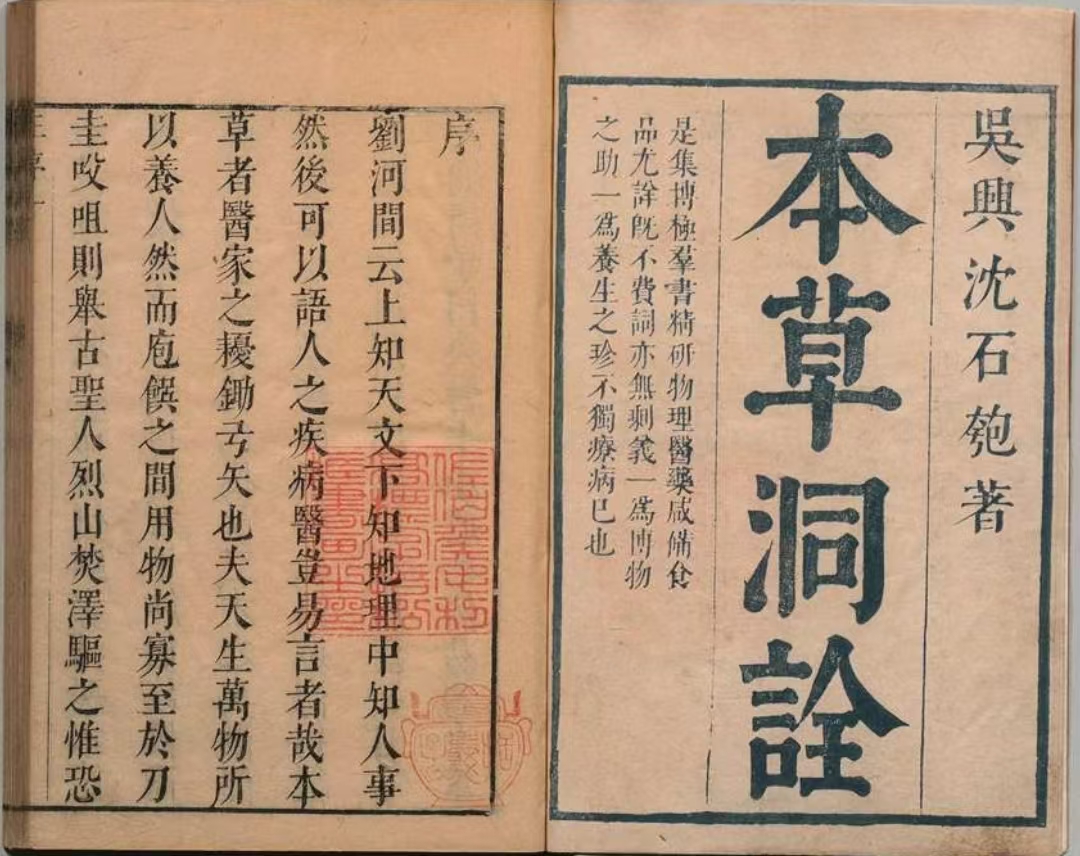 吳興沈石匏著
本草洞詮
是集博極羣書精研物理醫藥咸備食
品尤詳旣不費詞亦無剩義一爲博物
之助一爲養生之珍不獨療病已也
序
劉河間云上知天文下知地理中知人事
然後可以語人之疾病醫豈易言者哉本
草者醫家之耰鋤弓矢也夫天生萬物所
以養人然而庖饌之間用物尚寡至於刀
圭㕮咀則舉古聖人烈山焚澤驅之惟恐